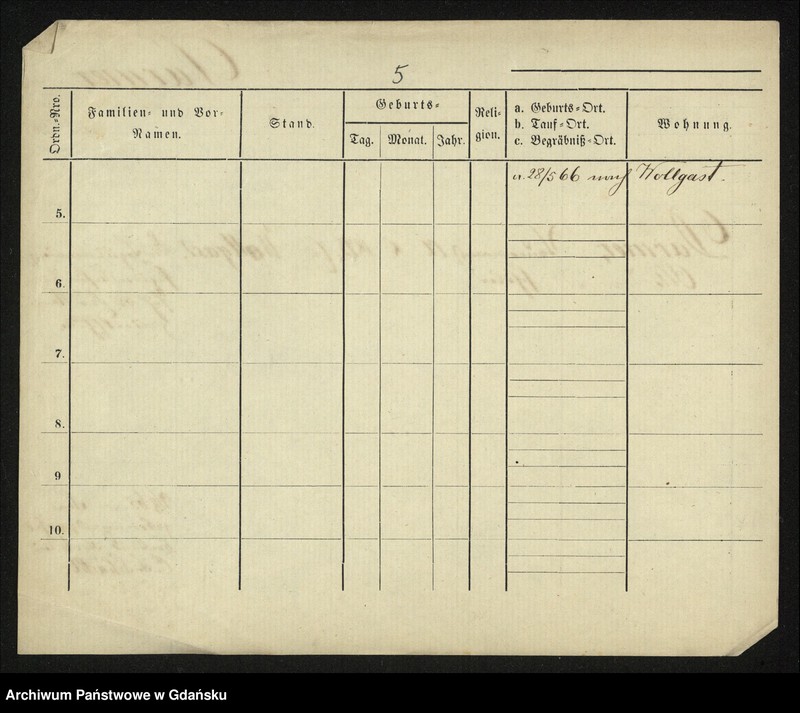 5
Ordn.-Nro.
Familien- und Vor-
Namen.
Stand.
Geburts-
Tag.
Monat.
Jahr.
Reli-
gion.
a. Geburts-Ort.
b. Tauf-Ort.
c. Begräbniß-Ort.
Wohnung.
28/5 66 nach Wollgast.
5.
6.
7.
8.
9
10.
Archiwum Państwowe w Gdańsku